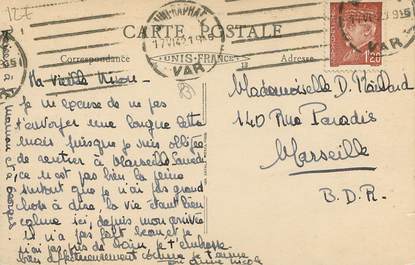 CARTE POSTALE
Correspondance
Adresse
TUNIS-FRANCE
VAR
1'20
Ma vieille
Je m'excuse de ne pas
t'envoyer une longue lettre
mais puisque je suis obligée
de rentrer à Marseille Samedi
ce n'est pas bien la peine
surtout que je n'ai pas grand
chose à dire, la vie étant bien
calme ici, depuis mon arrivée
il n'a pas fait beau et je
n'ai pas pris de bain, je t'embrasse
bien affectueusement comme je t'aime
Mademoiselle D. Maillard
140 Rue Paradis
Marseille
B.D.R.